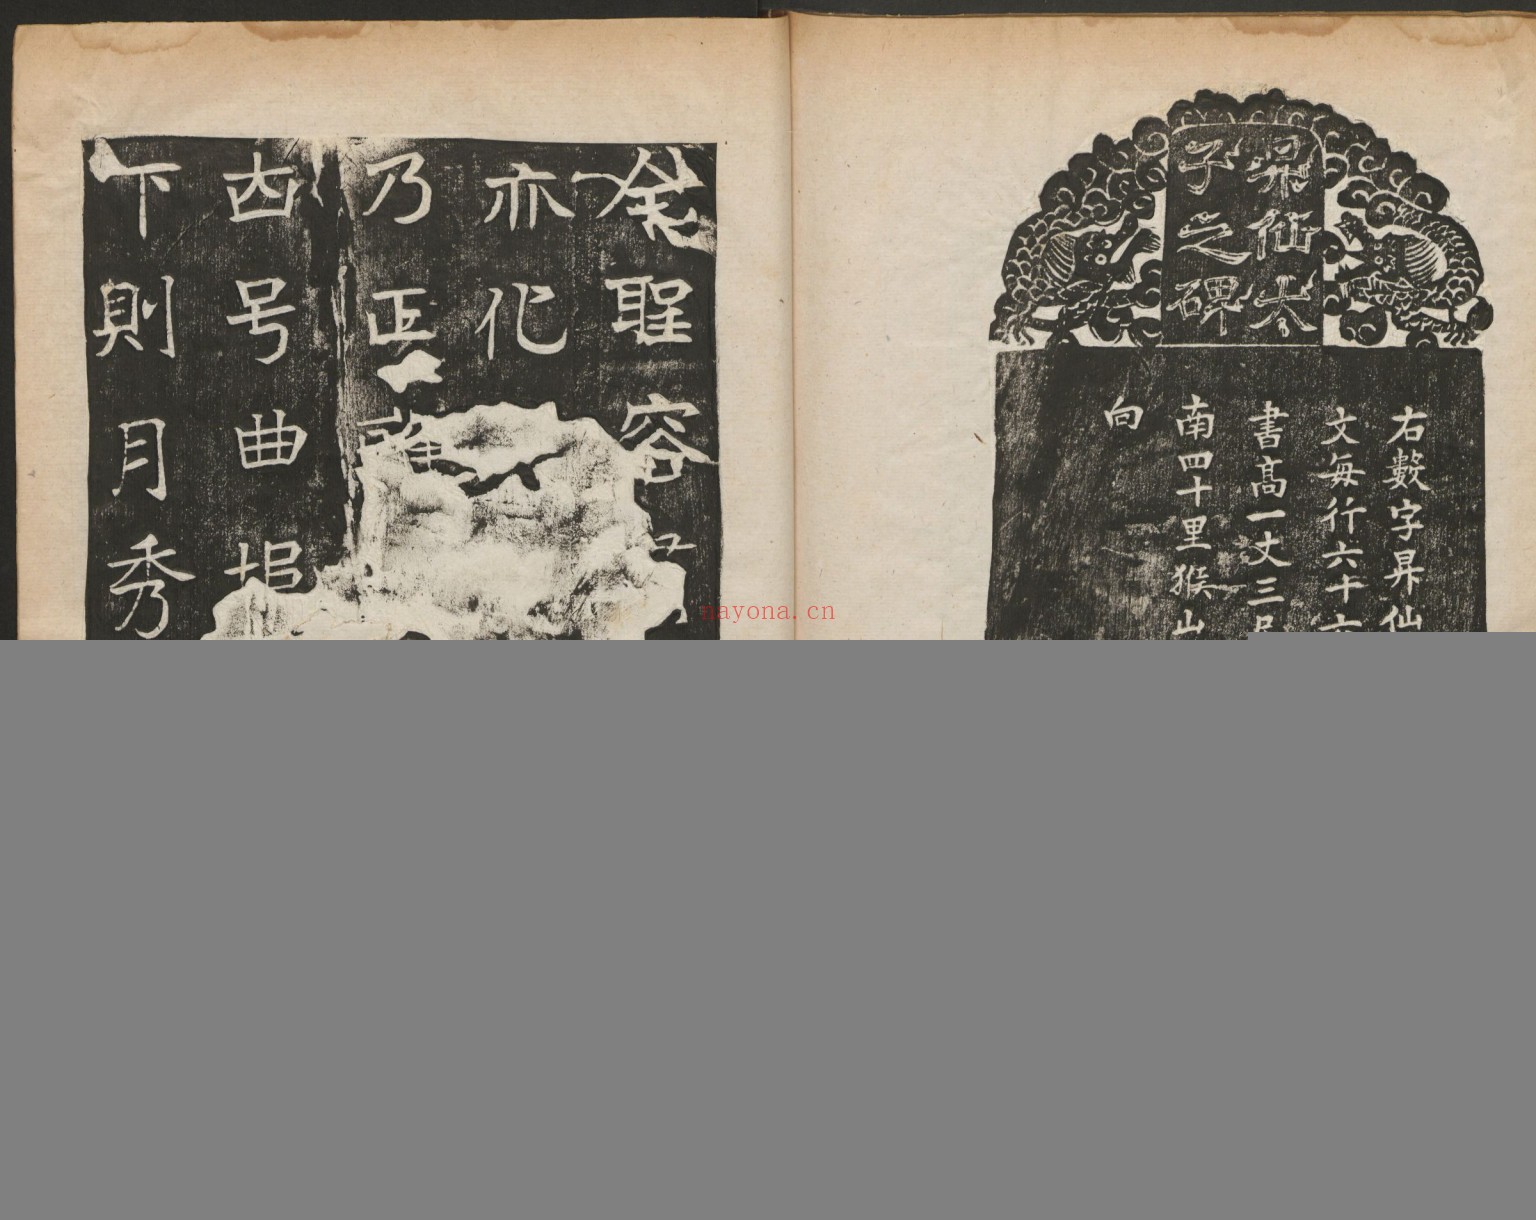 昇仙太
子之碑
右數字昇仙
文每行六十六
書高一丈三尺
南四十里猴山
向
聖容
亦化
乃正
西号曲
下則月秀
nayona.cn